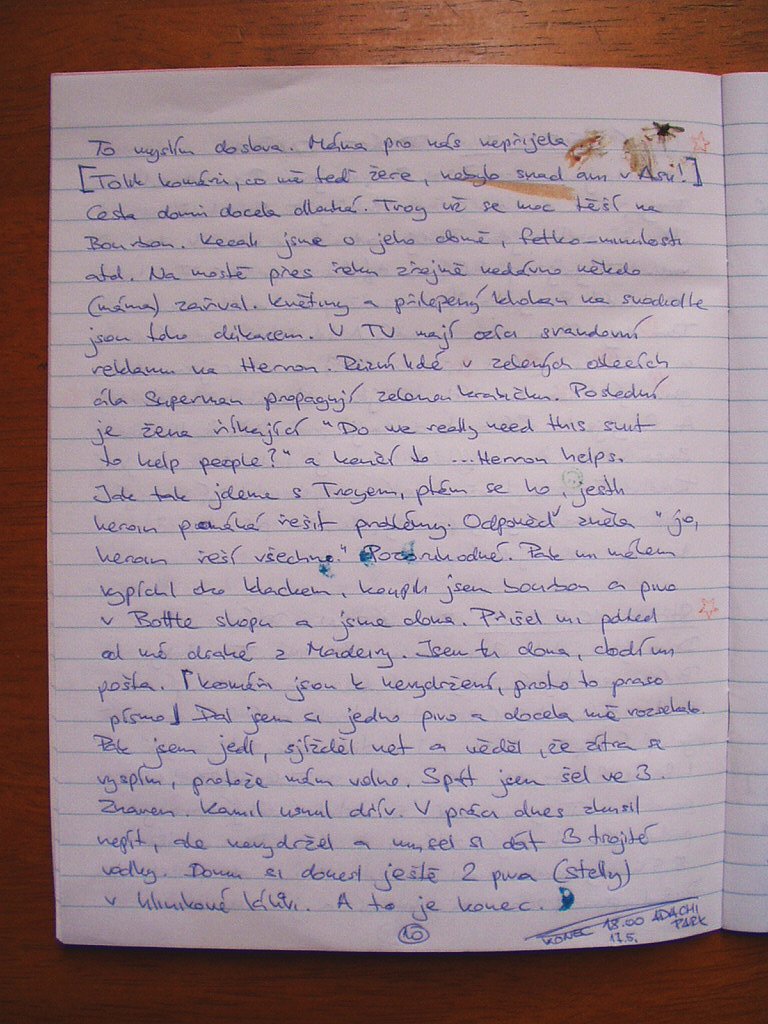 To myslím doslova. Máma pro nás nepřijela
[Tolik komárů, co mě teď žere, nebylo snad ani v Asii!]
Cesta domů docela dlouhá. Troy už se moc těší na
Bourbon. Kecali jsme o jeho , fetko-minulosti
atd. Na mostě přes řeku zřejmě nedávno někdo
(máma) zařval. Květiny a přilepený klokan na svodidle
jsou toho důkazem. V TV mají srandovní
reklamu na Herron. Různí lidé v zelených oblecích
ála Superman propagují zelenou krabičku. Poslední
je žena říkající "Do we really need this suit
to help people?" a končí to ...Herron helps.
Jak tak jdeme s Troyem, ptám se ho, jestli
heroin pomáhá řešit problémy. Odpověď zněla "jo,
heroin řeší všechno." Pozoruhodné. Pak mi málem
vypíchl oko klackem, koupili jsem bourbon a pivo
v Bottle shopu a jsme doma. Přišel mi pohled
od mé drahé z Madeiry. Jsem tu doma, chodí mi
pošta. [Komáři jsou k nevydržení, proto to praso
písmo] Dal jsem si jedno pivo a docela mě rozsekalo.
Pak jsem jedl, sjížděl net a věděl, že zítra se
vyspím, protože mám volno. Spát jsem šel ve 3.
Znaven. Kamil usnul dřív. V práci dnes zkusil
nepít, ale nevydržel a musel si dát 3 trojité
vodky. Domu si donesl ještě 2 piva (stelly)
v hliníkové . A to je konec.
10
KONEC 18.00 ADACHI
17.5. PARK